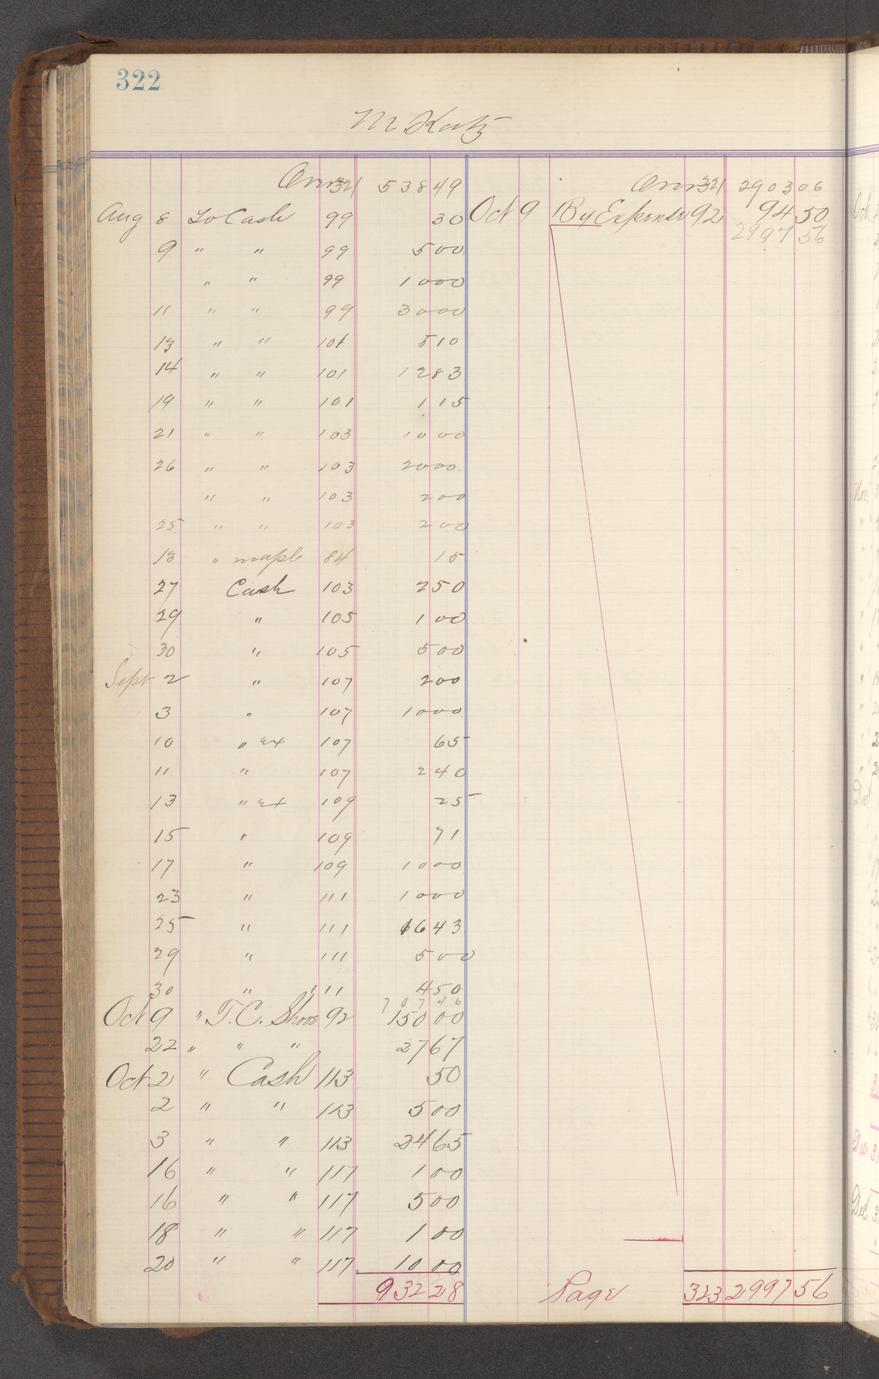 322
M Katz
Over 321 538 49 Over 321 2903 06
Aug 8 To Cash 99 30 Oct 9 By Expense 92 94 50
2997 56
9 " " 99 5 00
" " 99 10 00
11 " " 99 30 00
13 " " 101 5 10
14 " " 101 12 83
19 " " 101 1 15
21 " " 103 10 00
26 " " 103 20 00
" " 103 2 00
25 " " 103 2 00
13 " maple 84 15
27 Cash 103 2 50
29 " 105 1 00
30 " 105 5 00
Sept 2 " 107 2 00
3 " 107 10 00
10 " ex 107 65
11 " 107 2 40
13 " ex 109 25
15 " 109 71
17 " 109 10 00
23 " 111 10 00
25 " 111 16 43
29 " 111 5 00
30 " 111 4 50
707 46
Oct 9 " T.C. Shoes 92 150 00
22 " " " 27 67
Oct 2 " Cash 113 50
2 " " 113 5 00
3 " " 113 24 65
16 " " 117 1 00
16 " " 117 5 00
18 " " 117 1 00
20 " " 117 10 00
932 28 Page 323 2997 56